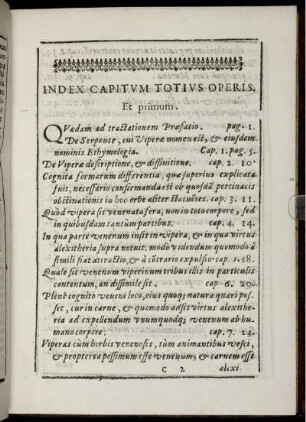 INDEX CAPITVM TOTIVS OPERIS,
Et primum.
QVadam ad tractationem Præfatio. pag. 1.
De Serpente, cui Viperæ nomen est, & eiusdem
nominis Ethymologia. Cap. 1. pag. 5.
De Viperæ descriptione, & diffinitione. cap. 2. 10
Cognita formarum differentia, quæ superius explicata
fuit, necessariò confirmanda est ob quosdã pertinacis
obstinationis in hoc orbe aliter sentientes. cap. 3. 11.
Quòd vipera sit venenata fera, non in toto corpore, sed
in quibusdam tantùm partibus. cap. 4. 14.
In qua parte venenum insit in vipera, & in qua virtus
alexitheria supra notuit, modò videndum quomodò à
simili fiat attractio, & à cõtrario expulsio cap. 5. 18.
Quale sit venenum viperinum tribus illis in particulis
contentum, an dissimile sit. cap. 6. 20.
Plenè cognito veneni loco, eius quoq; natura quari pos-
set, cur in carne, & quomodo adsit virtus alexithe-
ria ad expellendum vnumquodq; venenum ab hu-
mano corpore. cap. 7. 24.
Viperas cùm herbis venenosis, tùm animantibus vesci,
& propterea pessimum esse venenum, & carnem esse
C 2 alexi